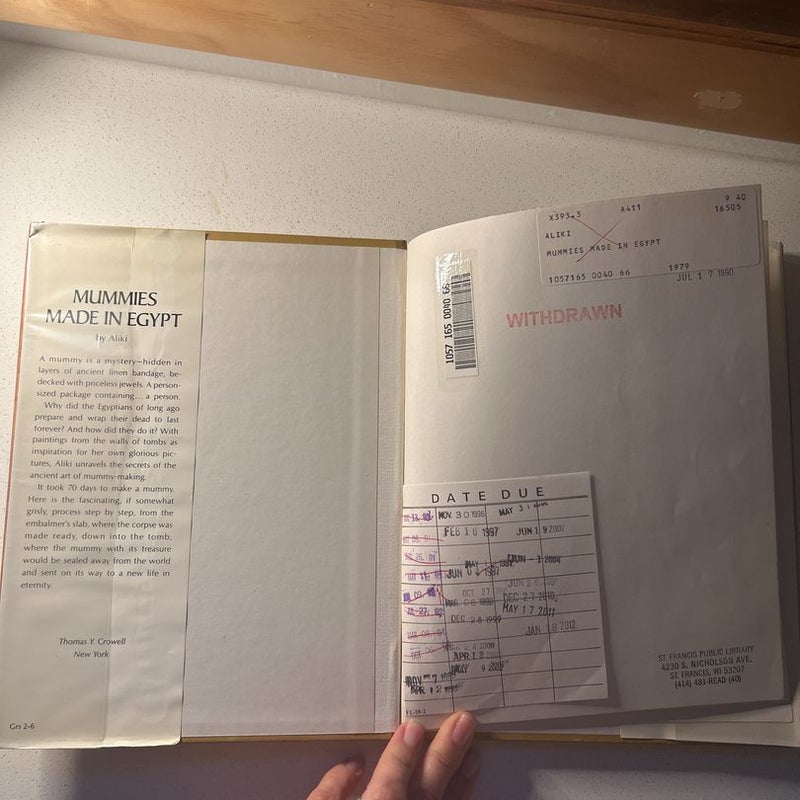 MUMMIES
MADE IN EGYPT
by Aliki
A mummy is a mystery—hidden in
layers of ancient linen bandage, be-
decked with priceless jewels. A person-
sized package containing... a person.
Why did the Egyptians of long ago
prepare and wrap their dead to last
forever? And how did they do it? With
paintings from the walls of tombs as
inspiration for her own glorious pic-
tures, Aliki unravels the secrets of the
ancient art of mummy-making.
It took 70 days to make a mummy.
Here is the fascinating, if somewhat
grisly, process step by step, from the
embalmer's slab, where the corpse was
made ready, down into the tomb,
where the mummy with its treasure
would be sealed away from the world
and sent on its way to a new life in
eternity.
Thomas Y. Crowell
New York
Grs 2-6
9 40
X393.3 A411 16505
ALIKI
MUMMIES MADE IN EGYPT
1057165 0040 66 1979
JUL 17 1990
1057 165 0040 66
WITHDRAWN
DATE DUE
NOV 30 1996 MAY 31
FEB 10 1997 JUN 19 2002
JUN 1997 JUN - 1
OCT 27
DEC 27 2010
MAY 17 2011
DEC 28 1999
JAN 18 2012
APR 1
MAY 9
NOV
MAR 12
ST. FRANCIS PUBLIC LIBRARY
4230 S. NICHOLSON AVE.
ST. FRANCIS, WI 53207
(414) 481-READ (40)